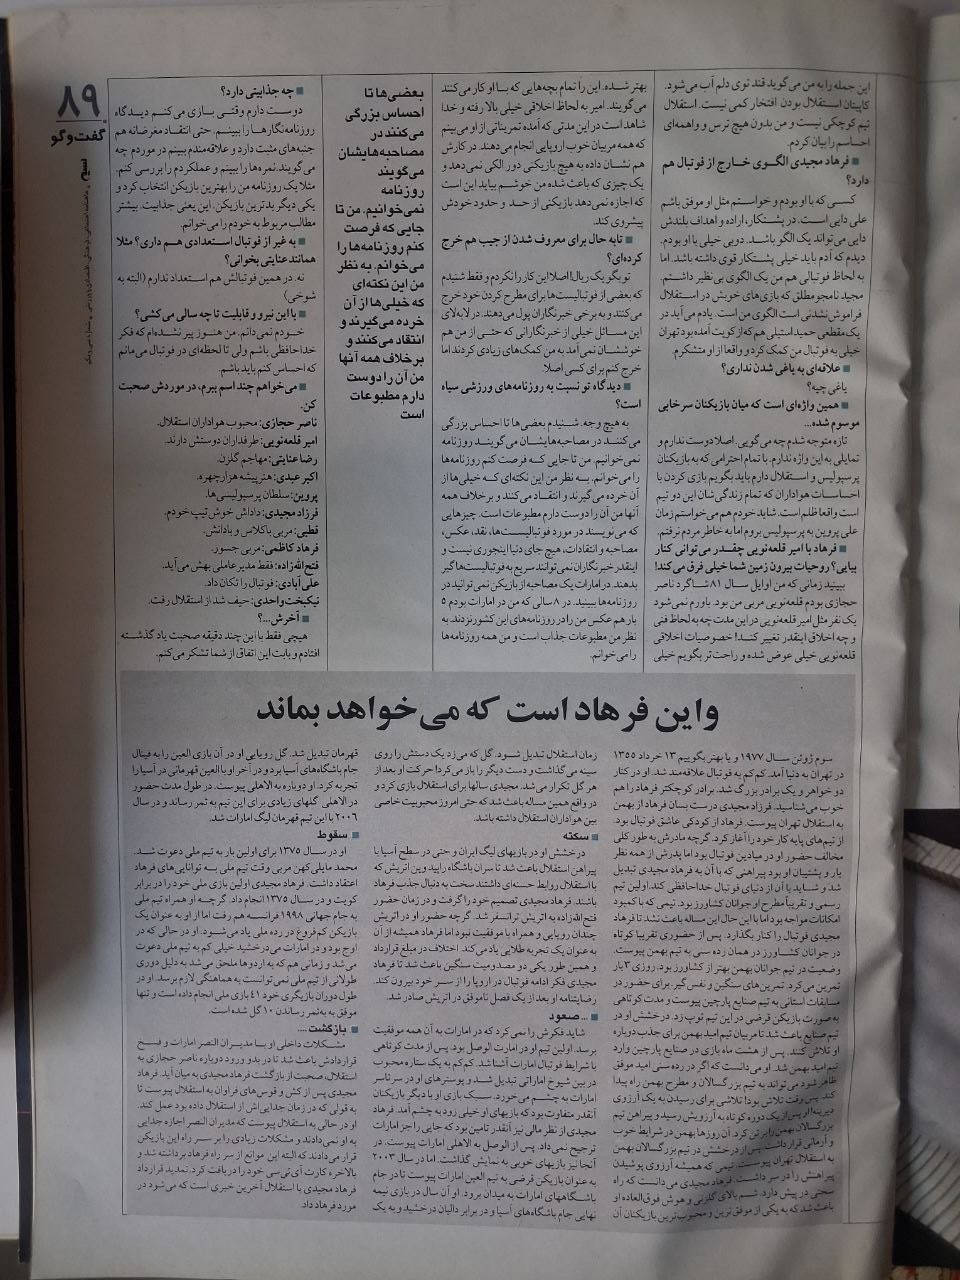 ۸۹
گفت‌وگو
نسیم
این جمله را به من می‌گوید قند توی دلم آب می‌شود.
کاپیتان استقلال بودن افتخار کمی نیست. استقلال
تیم کوچکی نیست و من بدون هیچ ترس و واهمه‌ای
احساسم را بیان کردم.
فرهاد مجیدی الگوی خارج از فوتبال هم
دارد؟
کسی که با او بودم و خواستم مثل او موفق باشم
علی دایی است. در پشتکار، اراده و اهداف بلندش
دایی می‌تواند یک الگو باشد. دوبی خیلی با او بودم.
دیدم که آدم باید خیلی پشتکار قوی داشته باشد. اما
به لحاظ فوتبالی هم من یک الگوی بی‌نظیر داشتم.
مجید نامجومطلق که بازی‌های خوبش در استقلال
فراموش‌نشدنی است الگوی من است. یادم می‌آید در
یک مقطعی حمید استیلی هم که از کویت آمده بود تهران
خیلی به فوتبال من کمک کرد و واقعا از او متشکرم.
علاقه‌ای به یاغی شدن نداری؟
یاغی چیه؟
همین واژه‌ای است که میان بازیکنان سرخابی
موسوم شده...
تازه متوجه شدم چه می‌گویی. اصلا دوست ندارم و
تمایلی به این واژه ندارم. با تمام احترامی که به بازیکنان
پرسپولیس و استقلال دارم باید بگویم بازی کردن با
احساسات هواداران که تمام زندگی‌شان این دو تیم
است واقعا ظلم است. شاید خودم هم می‌خواستم زمان
علی پروین به پرسپولیس بروم اما به خاطر مردم نرفتم.
فرهاد با امیر قلعه‌نویی چقدر می‌توانی کنار
بیایی؟ روحیات بیرون زمین شما خیلی فرق می‌کند!
ببینید زمانی که من اوایل سال ۸۱ شاگرد ناصر
حجازی بودم قلعه‌نویی مربی من بود. باورم نمی‌شود
یک نفر مثل امیر قلعه‌نویی در این مدت چه به لحاظ فنی
و چه اخلاق اینقدر تغییر کند! خصوصیات اخلاقی
قلعه‌نویی خیلی عوض شده و راحت‌تر بگویم خیلی
بهتر شده. این را تمام بچه‌هایی که با او کار می‌کنند
می‌گویند. امیر به لحاظ اخلاقی خیلی بالا رفته و خدا
شاهد است در این مدتی که آمده تمریناتی از او می‌بینم
که همه مربیان خوب اروپایی انجام می‌دهند. در کارش
هم نشان داده به هیچ بازیکنی دور الکی نمی‌دهد و
یک چیزی که باعث شده من خوشم بیاید این است
که اجازه نمی‌دهد بازیکنی از حد و حدود خودش
پیشروی کند.
تا به حال برای معروف شدن از جیب هم خرج
کرده‌ای؟
تو بگو یک ریال! اصلا این کار را نکردم و فقط شنیدم
که بعضی از فوتبالیست‌ها برای مطرح کردن خود خرج
می‌کنند و به برخی خبرنگاران پول می‌دهند. در لابه‌لای
این مسائل خیلی از خبرنگارانی که حتی از من هم
خوششان نمی‌آمد به من کمک‌های زیادی کردند اما
خرج کنم برای کسی اصلا.
دیدگاه تو نسبت به روزنامه‌های ورزشی سیاه
است؟
به هیچ وجه. شنیدم بعضی‌ها تا احساس بزرگی
می‌کنند در مصاحبه‌هایشان می‌گویند روزنامه
نمی‌خوانیم. من تا جایی که فرصت کنم روزنامه‌ها
را می‌خوانم. به نظر من این نکته‌ای که خیلی‌ها از
آن خرده می‌گیرند و انتقاد می‌کنند و برخلاف همه
آنها من آن را دوست دارم مطبوعات است. چیزهایی
که می‌نویسند در مورد فوتبالیست‌ها، نقد، عکس،
مصاحبه و انتقادات، هیچ جای دنیا اینجوری نیست و
اینقدر خبرنگاران نمی‌توانند سریع به فوتبالیست‌ها گیر
بدهند. در امارات یک مصاحبه از بازیکن نمی‌توانید در
روزنامه‌ها ببینید. در ۸ سالی که من در امارات بودم ۵
بار هم عکس من را در روزنامه‌های این کشور نزدند. به
نظر من مطبوعات جذاب است و من همه روزنامه‌ها
را می‌خوانم.
بعضی‌ها تا
احساس بزرگی
می‌کنند در
مصاحبه‌هایشان
می‌گویند
روزنامه
نمی‌خوانیم. من تا
جایی که فرصت
کنم روزنامه‌ها را
می‌خوانم. به نظر
من این نکته‌ای
که خیلی‌ها از آن
خرده می‌گیرند و
انتقاد می‌کنند و
برخلاف همه آنها
من آن را دوست
دارم مطبوعات
است
چه جذابیتی دارد؟
دوست دارم وقتی بازی می‌کنم دیدگاه
روزنامه‌نگارها را ببینم. حتی انتقاد مغرضانه هم
جنبه‌های مثبت دارد و علاقه‌مندم ببینم در موردم چه
می‌گویند، نمره‌ها را ببینم و عملکردم را بررسی کنم.
مثلا یک روزنامه من را بهترین بازیکن انتخاب کرد و
یکی دیگر بدترین بازیکن. این یعنی جذابیت. بیشتر
مطالب مربوط به خودم را می‌خوانم.
به غیر از فوتبال استعدادی هم داری؟ مثلا
همانند عنایتی بخوانی؟
نه. در همین فوتبالش هم استعداد ندارم (البته به
شوخی)
با این نیرو و قابلیت تا چه سالی می‌کشی؟
خودم نمی‌دانم. من هنوز پیر نشده‌ام که فکر
خداحافظی باشم ولی تا لحظه‌ای در فوتبال می‌مانم
که احساس کنم باید باشم.
می‌خواهم چند اسم ببرم، در موردش صحبت
کن.
ناصر حجازی: محبوب هواداران استقلال.
امیر قلعه‌نویی: طرفداران دوستش دارند.
رضا عنایتی: مهاجم گلزن.
اکبر عبدی: هنرپیشه هزارچهره.
پروین: سلطان پرسپولیسی‌ها.
فرزاد مجیدی: داداش خوش تیپ خودم.
قطبی: مربی باکلاس و بادانش.
فرهاد کاظمی: مربی جسور.
فتح‌الله‌زاده: فقط مدیرعاملی بهش می‌آید.
علی‌آبادی: فوتبال را تکان داد.
نیکبخت واحدی: حیف شد از استقلال رفت.
آخرش...؟
هیچی فقط با این چند دقیقه صحبت یاد گذشته
افتادم و بابت این اتفاق از شما تشکر می‌کنم.
و این فرهاد است که می‌خواهد بماند
سوم ژوئن سال ۱۹۷۷ و یا بهتر بگوییم ۱۳ خرداد ۱۳۵۵
در تهران به دنیا آمد. کم‌کم به فوتبال علاقه‌مند شد. او در کنار
دو خواهر و یک برادر بزرگ شد. برادر کوچکتر فرهاد را هم
خوب می‌شناسید. فرزاد مجیدی درست بسان فرهاد از بهمن
به استقلال تهران پیوست. فرهاد از کودکی عاشق فوتبال بود.
از تیم‌های پایه کار خود را آغاز کرد. گرچه مادرش به طور کلی
مخالف حضور او در میادین فوتبال بود اما پدرش از همه نظر
یار و پشتیبان او بود پیراهنی که با آن به فرهاد مجیدی تبدیل
شد و شاید با آن از دنیای فوتبال خداحافظی کند. اولین تیم
رسمی و تقریباً مطرح او جوانان کشاورز بود. تیمی که با کمبود
امکانات مواجه بود اما با این حال این مساله باعث نشد تا فرهاد
مجیدی فوتبال را کنار بگذارد. پس از حضوری تقریبا کوتاه
در جوانان کشاورز در همان رده سی به تیم بهمن پیوست.
وضعیت در تیم جوانان بهمن بهتر از کشاورز بود. روزی ۳ بار
تمرین می‌کرد. تمرین‌های سنگین و نفس‌گیر. برای حضور در
مسابقات استانی به تیم صنایع پارچین پیوست و مدت کوتاهی
به صورت بازیکن قرضی در این تیم توپ زد. درخشش او در
تیم صنایع باعث شد تا مربیان تیم امید بهمن برای جذب دوباره
او تلاش کنند. پس از هشت ماه بازی در صنایع پارچین وارد
تیم امید بهمن شد. او می‌دانست که اگر در رده سنی امید موفق
ظاهر شود می‌تواند به تیم بزرگسالان و مطرح بهمن راه پیدا
کند. پس وقت تلاش بود! تلاشی برای رسیدن به یک آرزوی
دیرینه! او پس از یک دوره کوتاه به آرزویش رسید و پیراهن تیم
بزرگسالان بهمن را بر تن کرد. آن روزها بهمن در شرایط خوب
و آرمانی قرار داشت. پس از درخشش در تیم بزرگسالان بهمن
به استقلال تهران پیوست. تیمی که همیشه آرزوی پوشیدن
پیراهنش را در سر داشت. فرهاد مجیدی می‌دانست که راه
سختی در پیش دارد. شم بالای گلزنی و هوش فوق‌العاده او
باعث شد که به یکی از موفق‌ترین و محبوب‌ترین بازیکنان آن
زمان استقلال تبدیل شود. گل که می‌زد یک دستش را روی
سینه می‌گذاشت و دست دیگر را باز می‌کرد! حرکت او بعد از
هر گل تکرار می‌شد. مجیدی سالها برای استقلال بازی کرد و
در واقع همین مساله باعث شد که حتی امروز محبوبیت خاصی
بین هواداران استقلال داشته باشد.
سکته
درخشش او در بازیهای لیگ ایران و حتی در سطح آسیا با
پیراهن استقلال باعث شد تا سران باشگاه راپید وین اتریش که
با استقلال روابط حسنه‌ای داشتند سخت به دنبال جذب فرهاد
باشند. فرهاد مجیدی تصمیم خود را گرفت و در زمان حضور
فتح‌الله‌زاده به اتریش ترانسفر شد. گرچه حضور او در اتریش
چندان رویایی و همراه با موفقیت نبود اما فرهاد همیشه از آن
به عنوان یک تجربه طلایی یاد می‌کند. اختلاف در مبلغ قرارداد
و همین طور یکی دو مصدومیت سنگین باعث شد تا فرهاد
مجیدی فکر ادامه فوتبال در اروپا را از سر خود بیرون کند.
رضایتنامه او بعد از یک فصل ناموفق در اتریش صادر شد.
... صعود
شاید فکرش را نمی‌کرد که در امارات به آن همه موفقیت
برسد. اولین تیم او در امارت الوصل بود. پس از مدت کوتاهی
با شرایط فوتبال امارات آشنا شد. کم کم به یک ستاره محبوب
در بین شیوخ اماراتی تبدیل شد و پوسترهای او در سرتاسر
امارات به چشم می‌خورد. سبک بازی او با دیگر بازیکنان
آنقدر متفاوت بود که بازیهای او خیلی زود به چشم آمد. فرهاد
مجیدی از نظر مالی نیز آنقدر تامین بود که جایی را جز امارات
ترجیح نمی‌داد. پس از الوصل به الاهلی امارات پیوست. در
آنجا نیز بازیهای خوبی به نمایش گذاشت. اما در سال ۲۰۰۳
به عنوان بازیکن قرضی به تیم العین امارات پیوست تا در جام
باشگاههای امارات به میدان برود. او آن سال در بازی نیمه
نهایی جام باشگاه‌های آسیا و در برابر دالیان درخشید و به یک
قهرمان تبدیل شد. گل رویایی او در آن بازی العین را به فینال
جام باشگاه‌های آسیا برد و در آخر او با العین قهرمانی در آسیا را
تجربه کرد. او دوباره به الاهلی پیوست. در طول مدت حضور
در الاهلی گلهای زیادی برای این تیم به ثمر رساند و در سال
۲۰۰۶ با این تیم قهرمان لیگ امارات شد.
سقوط
او در سال ۱۳۷۵ برای اولین بار به تیم ملی دعوت شد.
محمد مایلی کهن مربی وقت تیم ملی به توانایی های فرهاد
اعتقاد داشت. فرهاد مجیدی اولین بازی ملی خود را در برابر
کویت و در سال ۱۳۷۵ انجام داد. گرچه او همراه تیم ملی
به جام جهانی ۱۹۹۸ فرانسه هم رفت اما از او به عنوان یک
بازیکن کم‌فروغ در رده ملی یاد می‌شود. او در حالی که در
اوج بود و در امارات می‌درخشید خیلی کم به تیم ملی دعوت
می‌شد و زمانی هم که به اردوها ملحق می‌شد به دلیل دوری
طولانی از تیم ملی نمی توانست به هماهنگی لازم برسد. او در
طول دوران بازیگری خود ۴۱ بازی ملی انجام داده است و تنها
موفق به به‌ثمر رساندن ۱۰ گل شده است.
بازگشت....
مشکلات داخلی او با مدیران النصر امارات و فسخ
قراردادش باعث شد تا در بدو ورود دوباره ناصر حجازی به
استقلال، صحبت از بازگشت فرهاد مجیدی به میان آید. فرهاد
مجیدی پس از کش و قوس‌های فراوان به استقلال پیوست تا
به قولی که در زمان جدایی‌اش از استقلال داده بود عمل کند.
او در حالی به استقلال پیوست که مدیران النصر اجازه جدایی
به او نمی‌دادند و مشکلات زیادی را بر سر راه این بازیکن
قرار می‌دادند که البته این موانع از سر راه فرهاد برداشته شد و
بالاخره کارت آی‌تی‌سی خود را دریافت کرد. تمدید قرارداد
فرهاد مجیدی با استقلال آخرین خبری است که می‌شود در
مورد فرهاد داد.